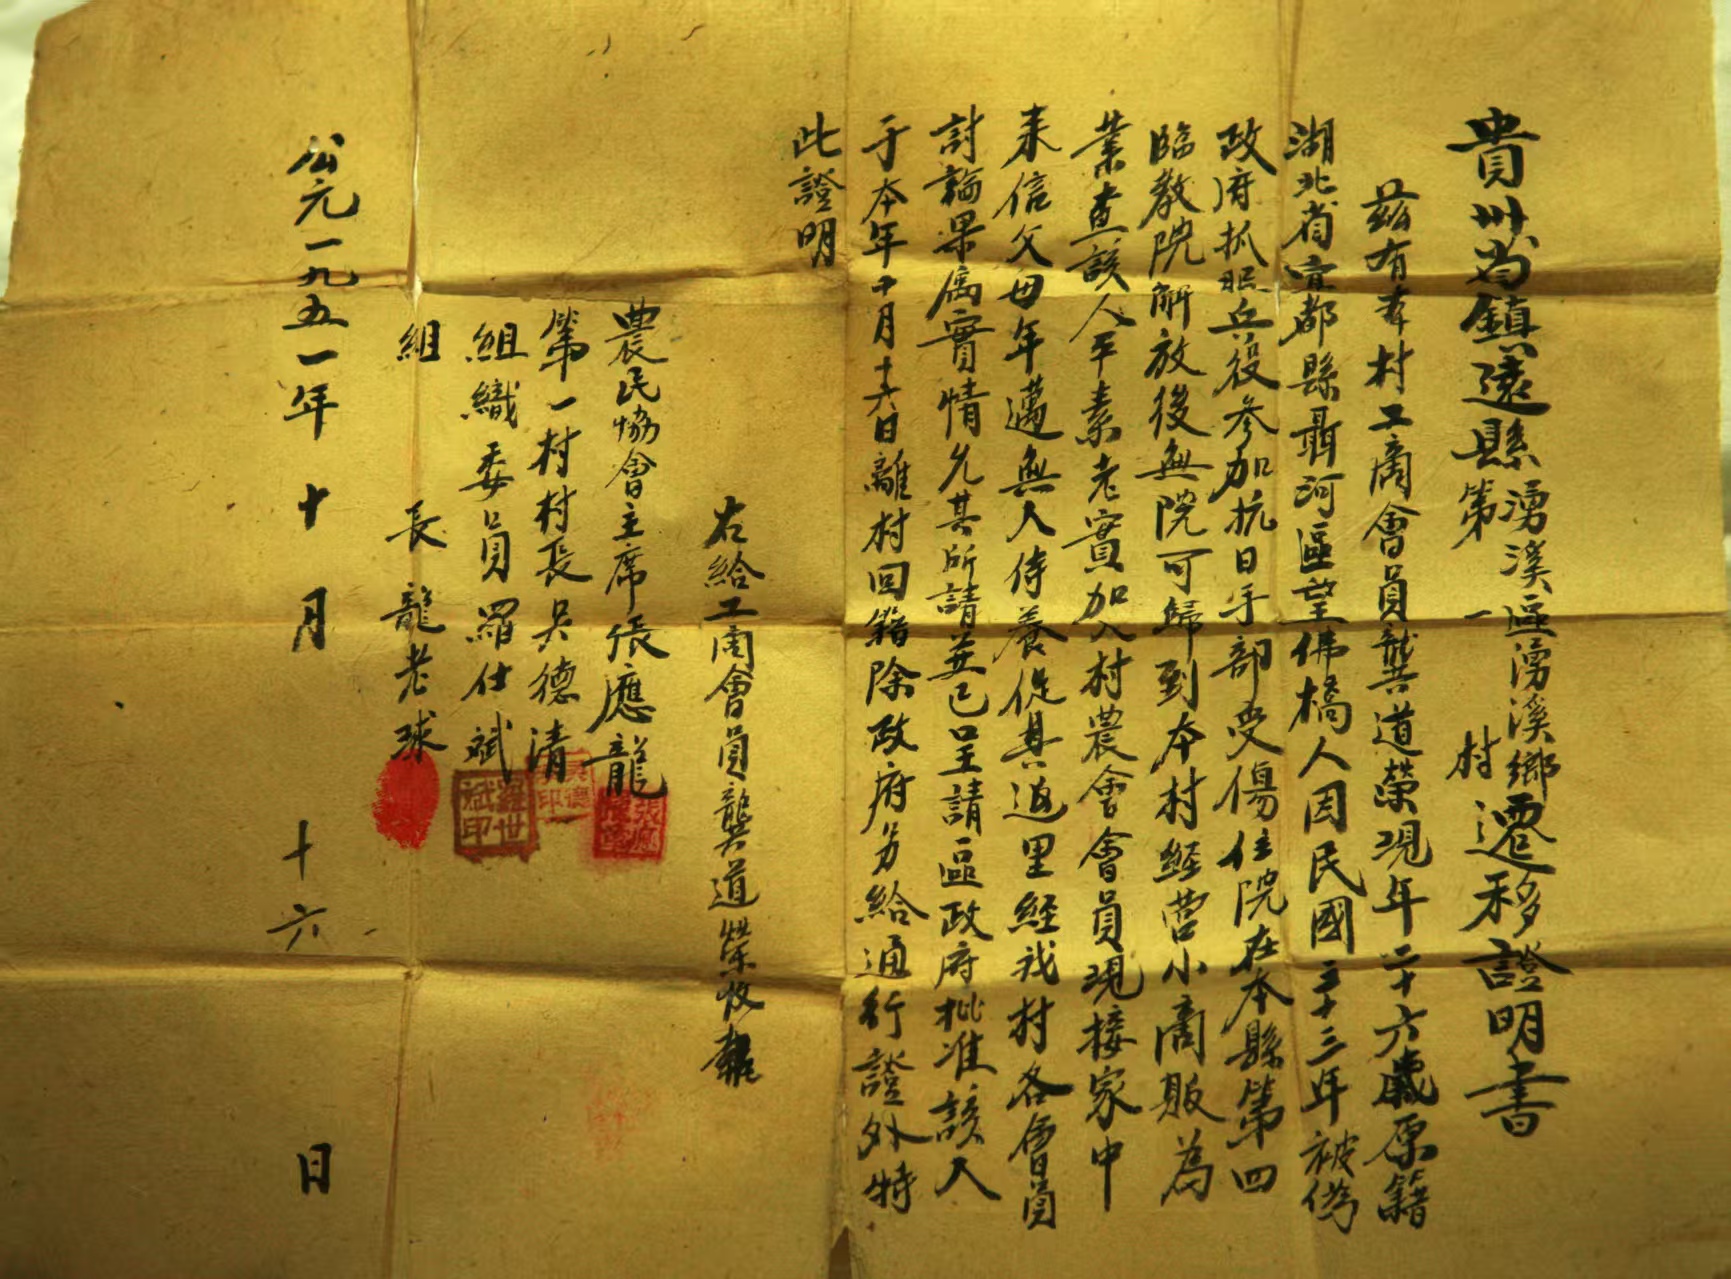 貴州省鎮遠縣湧溪區湧溪鄉第一村遷移證明書
茲有本村工商會員龔道榮現年二十六歲原籍
湖北省宜都縣聶河區望佛橋人因民國三十三年被偽
政府抓眂兵役参加抗日手部受傷住院在本縣第四
臨教院解放後無院可歸到本村經营小商販為
業查該人平素老實加入村農會會員現接家中
来信父母年邁無人侍養促其返里経我村各會員
討論果属實情允其所請並已呈請區政府批准該人
于本年十月十六日離村回籍除政府另給通行證外特
此證明
右給工商會員龔道榮收執
農民協會主席張應龍
第一村村長吴德清
組織委員羅仕斌
組長龍老球
公元一九五一年十月十六日
羅世斌印